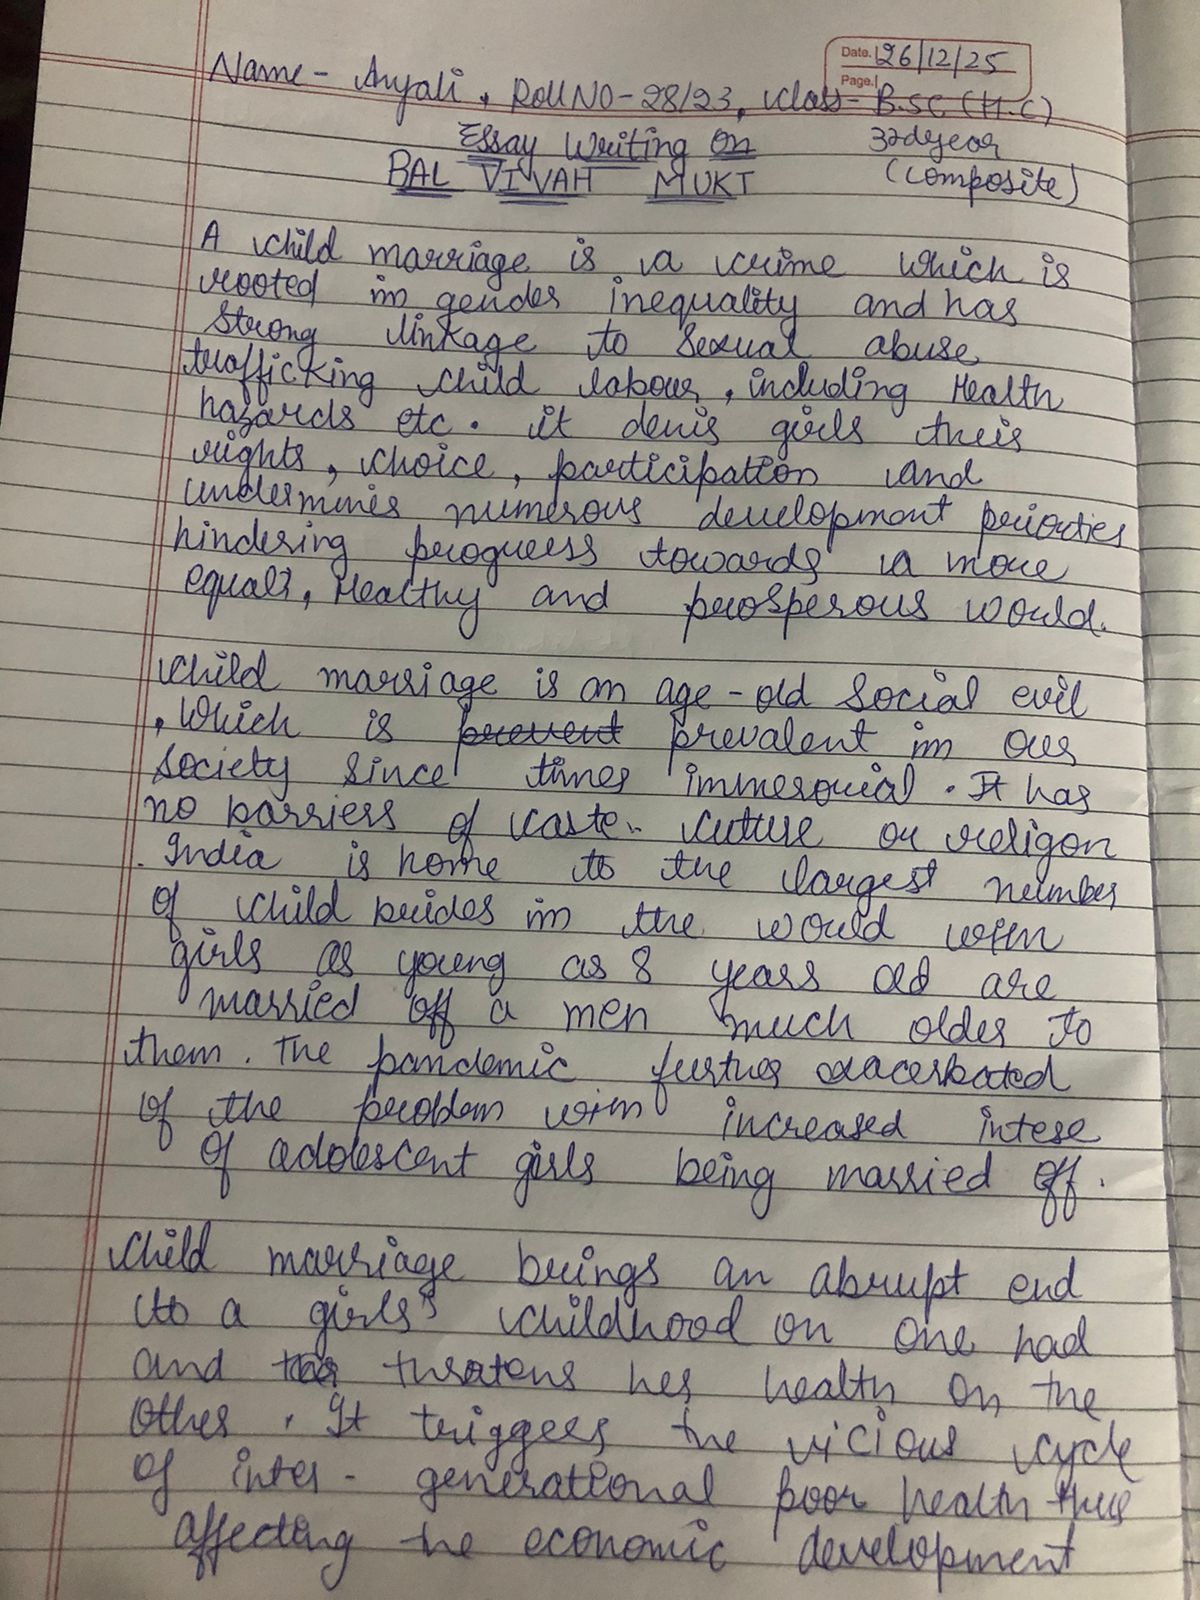 Date. 26/12/25
Page.
Name - Anjali, Roll NO - 28/23, class - B.SC (H.C)
Essay Writing On 3rd year
BAL VIVAH MUKT (composite)
A child marriage is a crime which is
rooted in gender inequality and has
strong linkage to sexual abuse
trafficking child labour, including Health
hazards etc. it denis girls their
rights, choice, participation and
undermines numerous development priorties
hindering progress towards a more
equals, Healthy and prosperous world.
child marriage is an age-old social evil
, which is prevent prevalent in our
society since times immerouial. It has
no barriers of caste culture or religon
. India is home to the largest number
of child brides in the world with
girls as young as 8 years old are
married off a men much older to
them. The pandemic further exacerbated
of the problem with increased intese
of adolescent girls being married off.
child marriage brings an abrupt end
to a girls' childhood on one had
and threatens her health on the
other. It triggers the vicious cycle
of inter-generational poor health thus
affecting the economic development